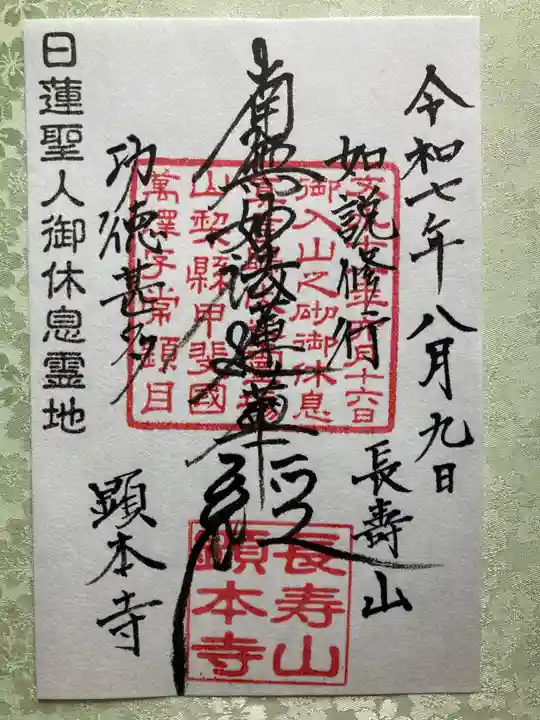 令和七年八月九日
如説修行
長壽山
南無妙法蓮華経
功徳甚多
顕本寺
日蓮聖人御休息霊地
御入山之砌御休息
山梨縣甲斐國
萬澤字常顕目
長寿山
顕本寺